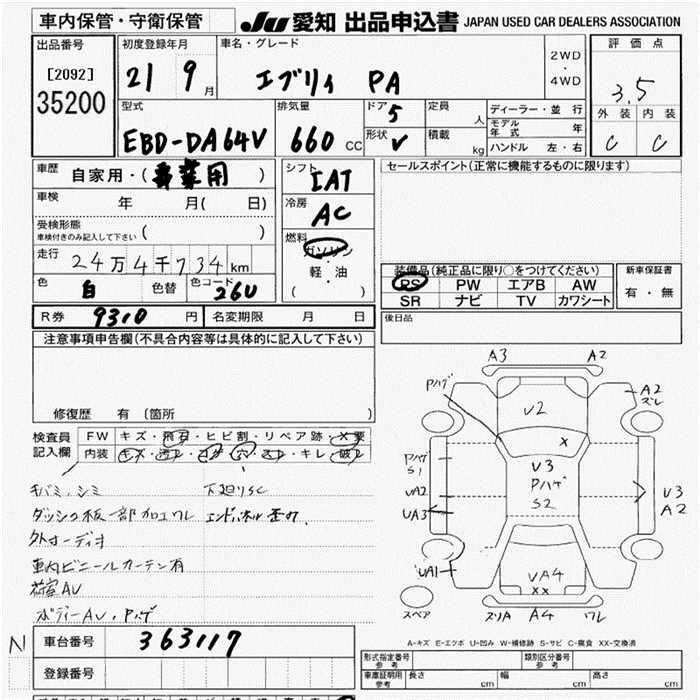 車内保管・守衛保管
JU 愛知 出品申込書 JAPAN USED CAR DEALERS ASSOCIATION
出品番号
[2092]
35200
初度登録年月
21 9月
車名・グレード
エブリィ PA
2WD
・
4WD
評価点
3.5
外装 内装
C C
型式
EBD-DA64V
排気量
660 CC
ドア 5
形状 V
定員 人
積載 kg
ディーラー・並行
モデル年式 年
ハンドル 左・右
車歴
自家用・(事業用)
車検 年 月( 日)
受検形態
車検付きのみ記入して下さい ( )
走行
24万4千734km
色 白 色替 色コード 26U
シフト
IAT
冷房
AC
燃料
ガソリン
軽・油
( ・ )
セールスポイント(正常に機能するものに限ります)
装備品(純正品に限り○をつけてください)
PS PW エアB AW
SR ナビ TV カワシート
新車保証書
有・無
後日品
R券 9310円 名変期限 月 日
注意事項申告欄(不具合内容等は具体的に記入して下さい)
修復歴 有(箇所 )
検査員記入欄
FW キズ・飛石・ヒビ割・リペア跡・X要
内装 キズ・汚れ・コゲ・穴・スレ・キレ・破レ
キバミ、シミ 下廻りSC
ダッシュ板一部加工ワレ エンドパネル歪み
外オーディオ
車内ビニールカーテン有
荷室AV
ボディーAV、Pハゲ
N
車台番号 363117
登録番号
A3 A2
Pハゲ
V2
A2
ズレ
X
PハゲS1
V3
Pハゲ
S2
UA2
UA3
V3
A2
UA1
VA4
XX
スペア
スリA A4 ワレ
A-キズ E-エクボ U-凹み W-補修跡 S-サビ C-腐食 XX-交換済
形式指定番号 参考
類別区分番号 参考
車庫証明用 参考
長さ cm 幅 cm 高さ cm